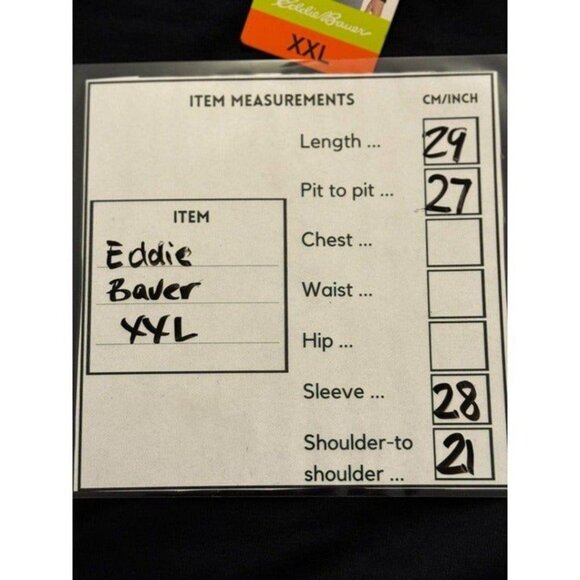 Eddie Bauer
XXL
ITEM MEASUREMENTS CM/INCH
Length ... 29
Pit to pit ... 27
Chest ...
Waist ...
Hip ...
Sleeve ... 28
Shoulder-to
shoulder ... 21
ITEM
Eddie
Bauer
XXL